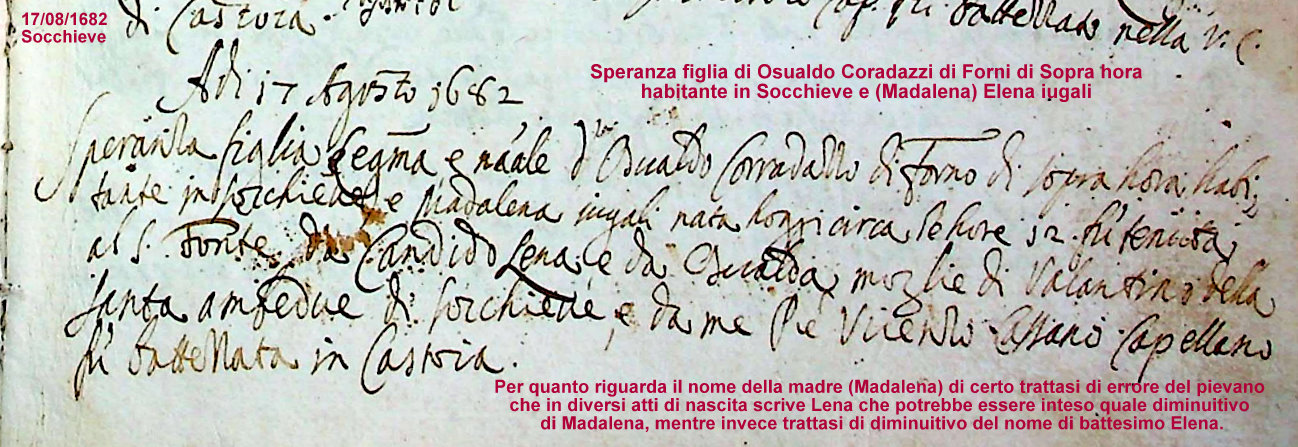 17/08/1682
Socchieve
di Castoia.
battezzata nella V. C.
Speranza figlia di Osualdo Coradazzi di Forni di Sopra hora
habitante in Socchieve e (Madalena) Elena iugali
Adi 17 Agosto 1682
Speranza figlia legma e nãale d'Osualdo Corradazzo di Forno di sopra hora habi,,
tante in Socchieve e Madalena iugali nata hoggi circa le hore 12 fu tenuta
al S. Fonte da Candido Lena, e da Osualda moglie di Valantino della
Santa ambedue di Socchieve, e da me Pe Vicenzo Cassano Capellano
fu battezzata in Castoia.
Per quanto riguarda il nome della madre (Madalena) di certo trattasi di errore del pievano
che in diversi atti di nascita scrive Lena che potrebbe essere inteso quale diminuitivo
di Madalena, mentre invece trattasi di diminuitivo del nome di battesimo Elena.